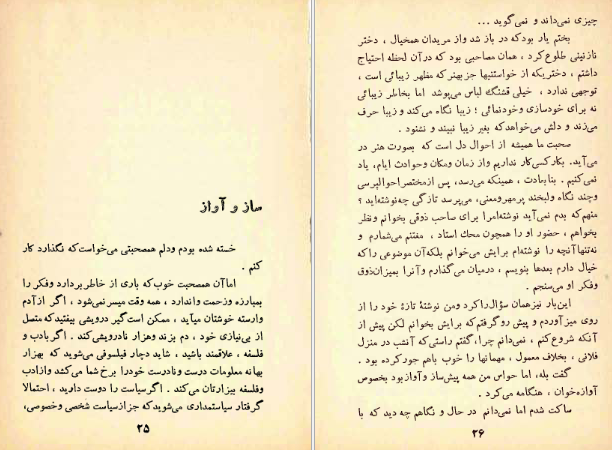 ساز و آواز
خسته شده بودم ودلم همصحبتی می‌خواست‌که نگذارد کار
کنم .
اماآن همصحبت خوب‌که باری از خاطربردارد وفکر را
بمبارزه وزحمت واندارد ، همه وقت میسر نمی‌شود ، اگر ازآدم
وارسته خوشتان میآید ، ممکن است‌گیر درویشی بیفتیدکه متصل
از بی‌نیازی خود ، دم بزند وهزار نادرویشی‌کند . اگر بادب و
فلسفه ، علاقمند باشید ، شاید دچار فیلسوفی می‌شوید که بهزار
بهانه معلومات درست ونادرست خودرا برخ شما می‌کشد وازادب
وفلسفه بیزارتان می‌کند . اگر سیاست را دوست دارید ، احتمالا
گرفتار سیاستمداری می‌شویدکه جز ازسیاست شخصی وخصوصی،
۲۵
چیزی نمی‌داند و نمی‌گوید ...
بختم یار بودکه در باز شد واز مریدان همخیال ، دختر
نازنینی طلوع‌کرد ، همان مصاحبی بود که درآن لحظه احتیاج
داشتم ، دختریکه از خواستنیها جز بهنر که مظهر زیبائی است ،
توجهی ندارد ، خیلی قشنگ لباس می‌پوشد اما بخاطر زیبائی
نه برای خودسازی وخودنمائی ؛ زیبا نگاه می‌کند و زیبا حرف
می‌زند و دلش می‌خواهدکه بغیر زیبا نبیند و نشنود .
صحبت ما همیشه از احوال دل است که بصورت هنر در
می‌آید. بکارکسی‌کار نداریم واز زمان ومکان وحوادث ایام، یاد
نمی‌کنیم . بنابعادت ، همینکه می‌رسد، پس ازمختصر احوالپرسی
وچند نگاه ولبخند پرمهرومعنی، می‌پرسد تازگی چه‌نوشته‌اید ؟
منهم‌که بدم نمی‌آید نوشته‌امرا برای صاحب ذوقی بخوانم ونظر
بخواهم ، حضور او را همچون محك استاد ، مغتنم می‌شمارم و
نه‌تنهاآنچه را نوشته‌ام برایش می‌خوانم بلکه‌آن موضوعی راکه
خیال دارم بعدها بنویسم ، درمیان می‌گذارم وآنرا بمیزان‌ذوق
وفکر او می‌سنجم .
این‌بار نیزهمان سؤال‌راکرد ومن نوشتهٔ تازهٔ خود را از
روی میز آوردم و پیش روگرفتم‌که برایش بخوانم لکن پیش از
آنکه شروع‌کنم ، نمی‌دانم چرا، گفتم راستی‌که آنشب در منزل
فلانی ، بخلاف معمول ، مهمانها را خوب باهم جورکرده بود .
گفت بله، اما حواس من همه پیش‌ساز وآوازبود بخصوص
آوازه‌خوان ، هنگامه می‌کرد .
ساکت شدم اما نمی‌دانم در حال و نگاهم چه دید که با
۲۶